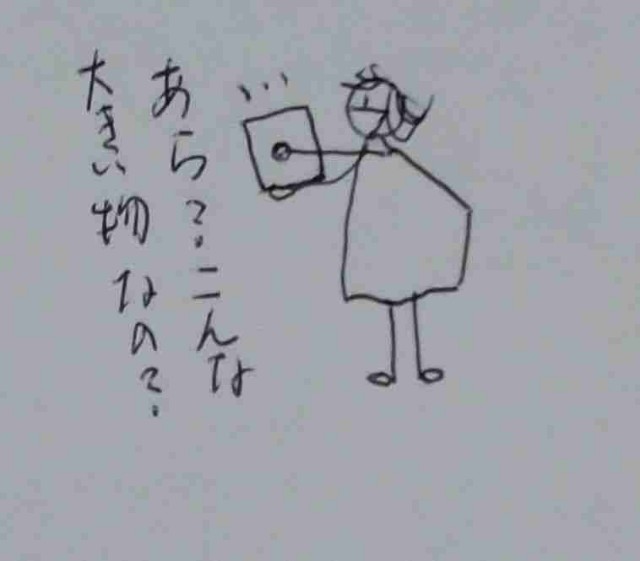 あら?こんな
大きい物なの?